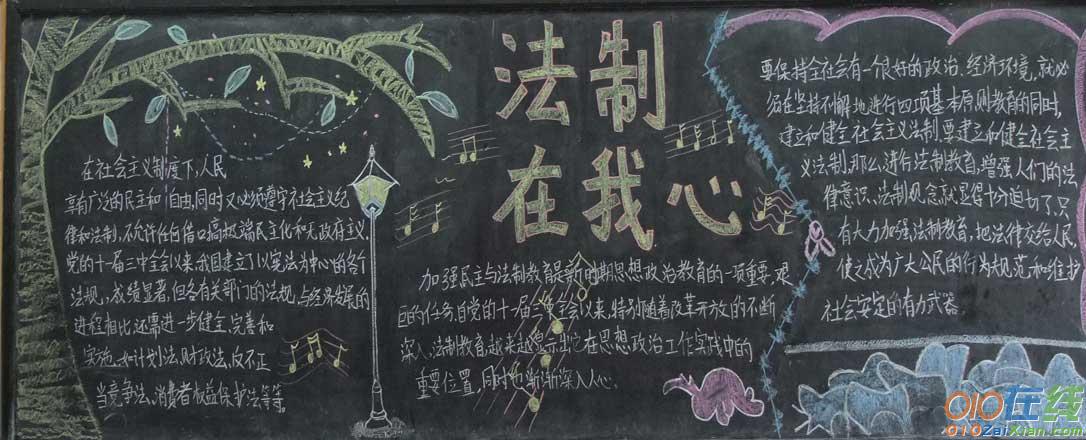 法制
在我心
在社会主义制度下,人民
享有广泛的民主和自由,同时又必须遵守社会主义纪
律和法制,不允许任何借口搞极端民主化和无政府主义.
党的十一届三中全会以来,我国建立了以宪法为中心的各个
法规,成绩显著,但各有关部门的法规,与经济发展的
进程相比还需进一步健全,完善和
实施,如计划法,财政法,反不正
当竞争法,消费者权益保护法等等.
加强民主与法制教育是新时期思想政治教育的一项重要,艰
巨的任务,自党的十一届三中全会以来,特别随着改革开放的不断
深入,法制教育,越来越显示出它在思想政治工作实践中的
重要位置,同时也渐渐深入人心.
要保持全社会有一个很好的政治、经济环境,就必
须在坚持不懈地进行四项基本原则教育的同时,
建立和健全社会主义法制,要建立和健全社会主
义法制,那么,进行法制教育,增强人们的法
律意识、法制观念就显得十分迫切了,只
有大力加强法制教育,把法律交给人民,
使之成为广大公民的行为规范和维护
社会安定的有力武器
010在线
010ZaiXian.com